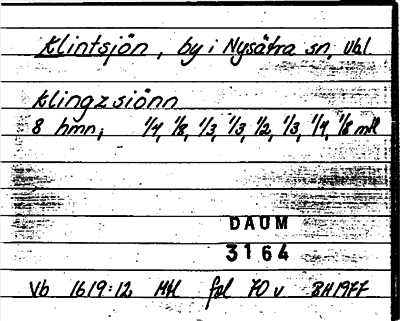 Klintsjön, by i Nysätra sn, Vbl
Klingzsiönn
8 hmn; 1/4, 1/8, 1/3, 1/3, 1/2, 1/3, 1/4, 1/8 mtl
DAUM
3164
Vb 1619:12 Mtl fol 70 v BH1977